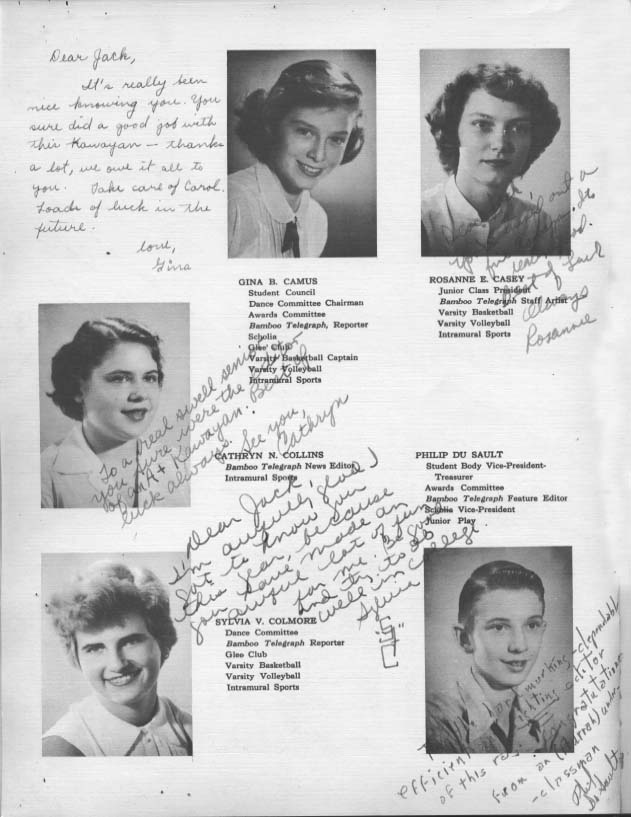 Dear Jack,
It's really been
nice knowing you. You
sure did a good job with
this Kawayan — thanks
a lot, we owe it all to
you. Take care of Carol.
Loads of luck in the
future.
love,
Gina
GINA B. CAMUS
Student Council
Dance Committee Chairman
Awards Committee
Bamboo Telegraph, Reporter
Scholia
Glee Club
Varsity Basketball Captain
Varsity Volleyball
Intramural Sports
ROSANNE E. CASEY
Junior Class President
Bamboo Telegraph Staff Artist
Varsity Basketball
Varsity Volleyball
Intramural Sports
of Luck
Always
Rosanne
To a real swell senior
you sure were the editor
of an A+ Kawayan. Best of
luck always. See you,
Cathryn
CATHRYN N. COLLINS
Bamboo Telegraph News Editor
Intramural Sports
PHILIP DU SAULT
Student Body Vice-President-
Treasurer
Awards Committee
Bamboo Telegraph Feature Editor
Scholia Vice-President
Junior Play
Dear Jack,
I'm awfully glad I
got to know you
this year, because
you have made an
awful lot of fun
for me. Be good
and try to do
well in college
Sylvia
SYLVIA V. COLMORE
Dance Committee
Bamboo Telegraph Reporter
Glee Club
Varsity Basketball
Varsity Volleyball
Intramural Sports
hard working - dependable
efficient editor
of this congratulations
from an under-
-classman
Phil
Du Sault